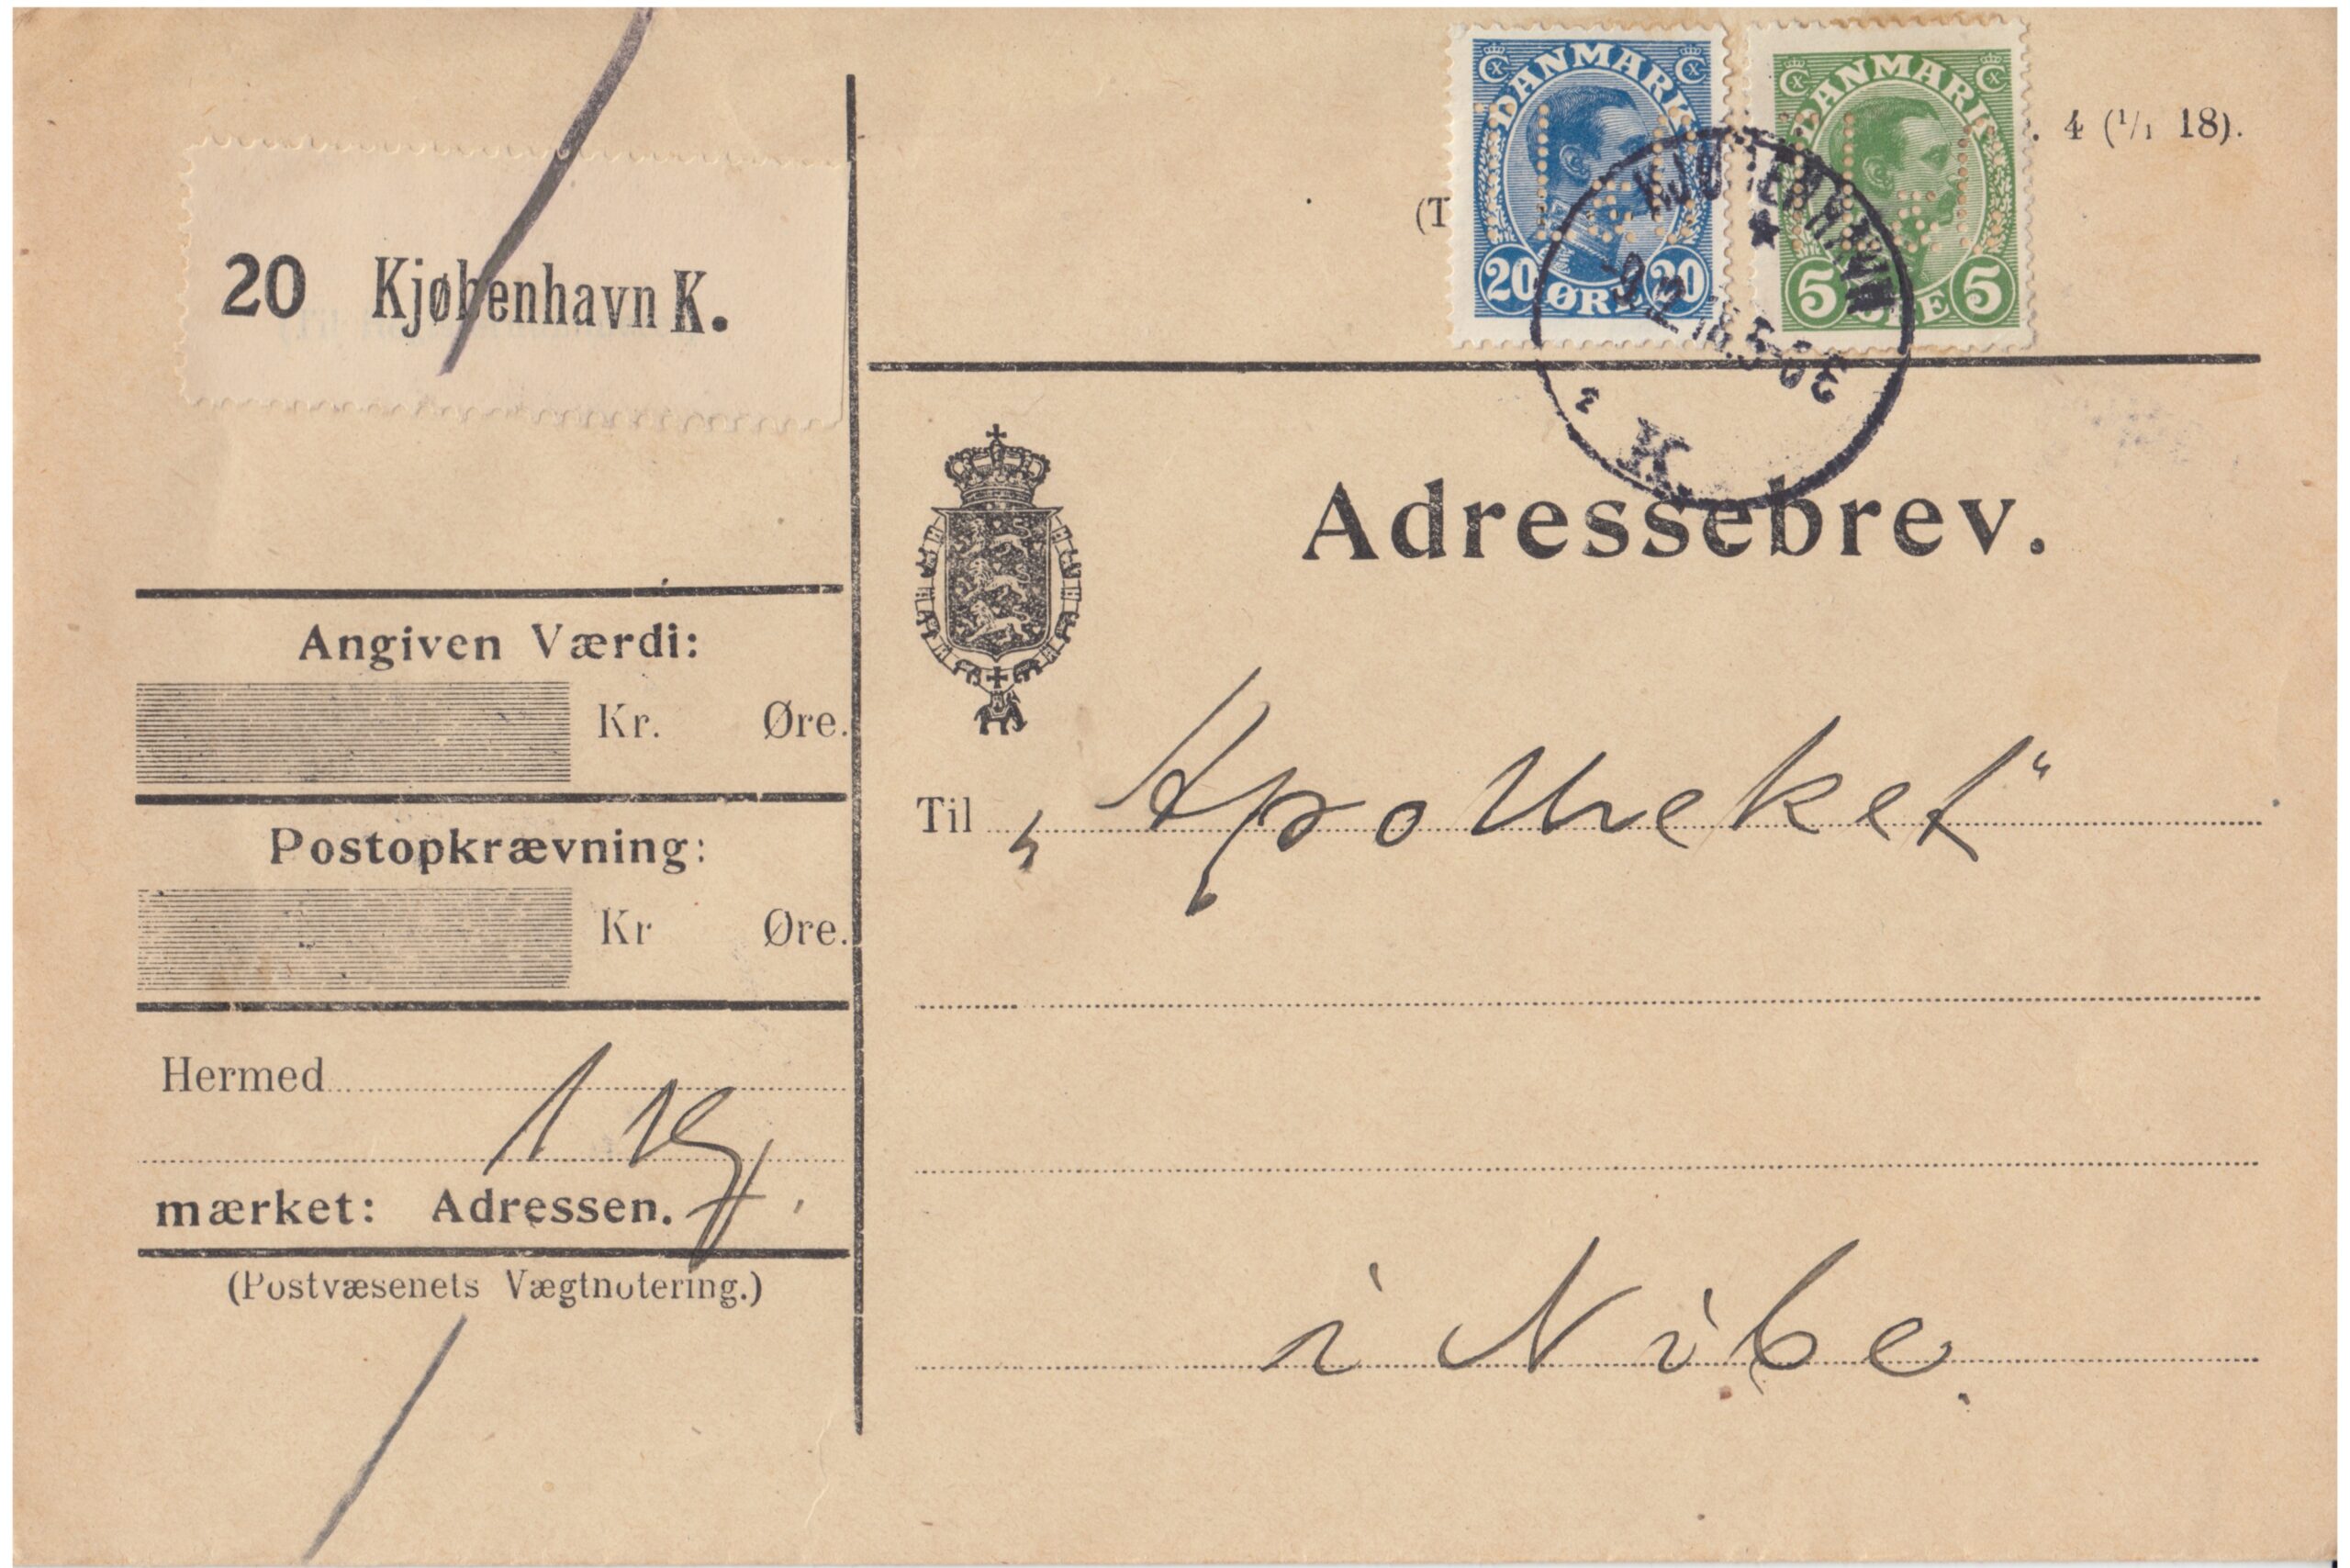 DANMARK
20 ØRE 20
DANMARK
5 ØRE 5
. 4 (1/1 18).
(T
KJØBENHAVN
K.
20 Kjøbenhavn K.
Adressebrev.
Angiven Værdi:
Kr. Øre.
Til „Apotheket“
Postopkrævning:
Kr Øre.
Hermed
1
mærket: Adressen.
(Postvæsenets Vægtnotering.)
i Nibe.